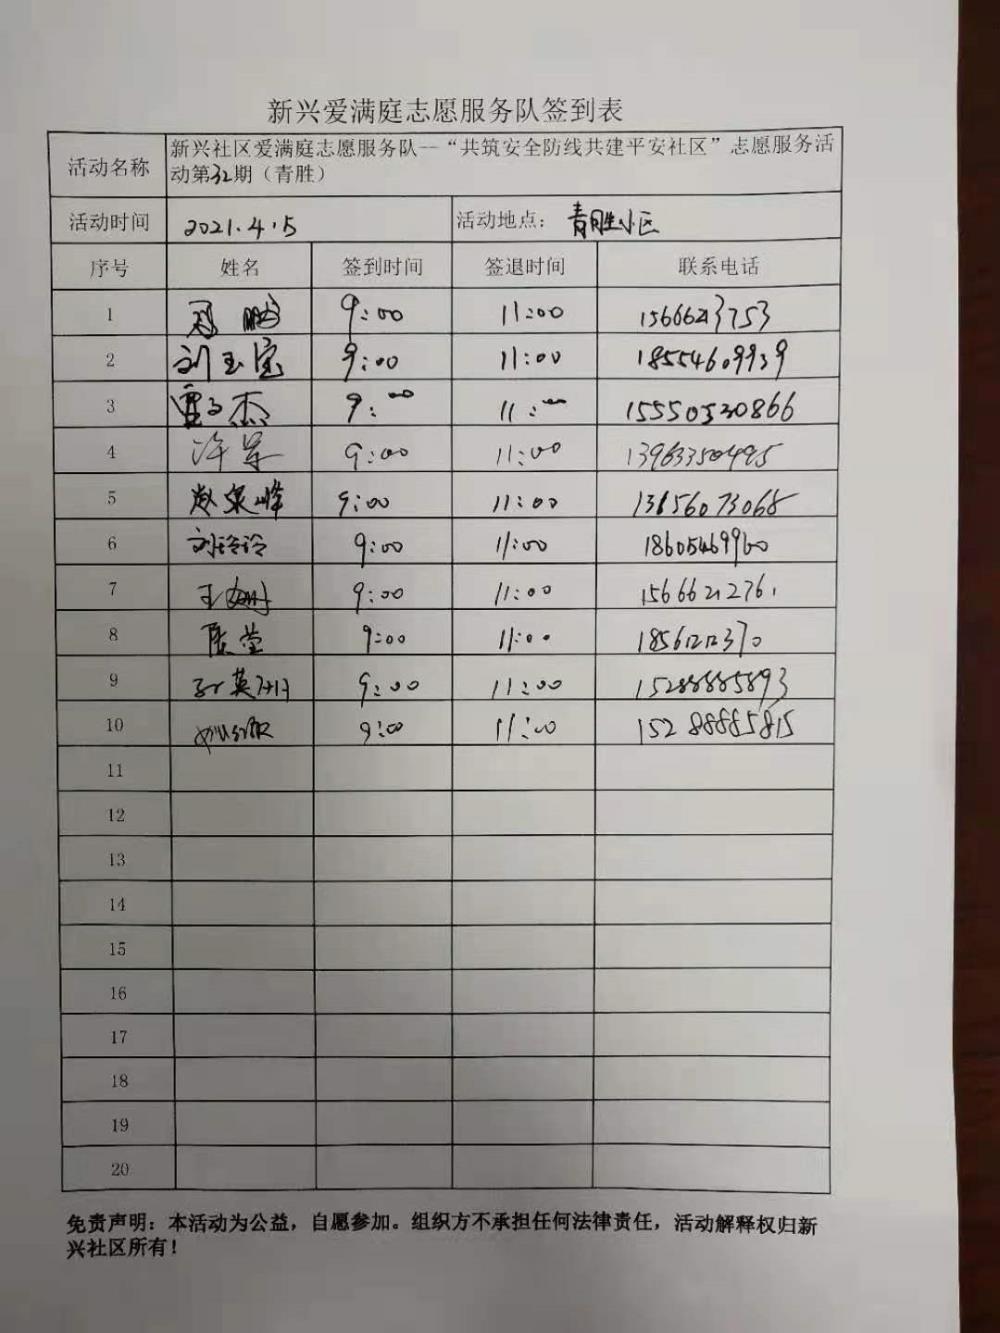 新兴爱满庭志愿服务队签到表
活动名称 新兴社区爱满庭志愿服务队--“共筑安全防线共建平安社区”志愿服务活
动第32期（青胜）
活动时间 2021.4.5 活动地点： 青胜小区
序号 姓名 签到时间 签退时间 联系电话
1 9:00 11:00 15666213753
2 刘玉宝 9:00 11:00 18554609939
3 9:00 11:00 15550530866
4 许军 9:00 11:00 13963350495
5 赵泉峰 9:00 11:00 13156073068
6 刘玲玲 9:00 11:00 18605469960
7 王姗 9:00 11:00 15666212761
8 陈莹 9:00 11:00 18561212370
9 9:00 11:00 15288885893
10 9:00 11:00 15288885815
11
12
13
14
15
16
17
18
19
20
免责声明：本活动为公益，自愿参加。组织方不承担任何法律责任，活动解释权归新
兴社区所有！